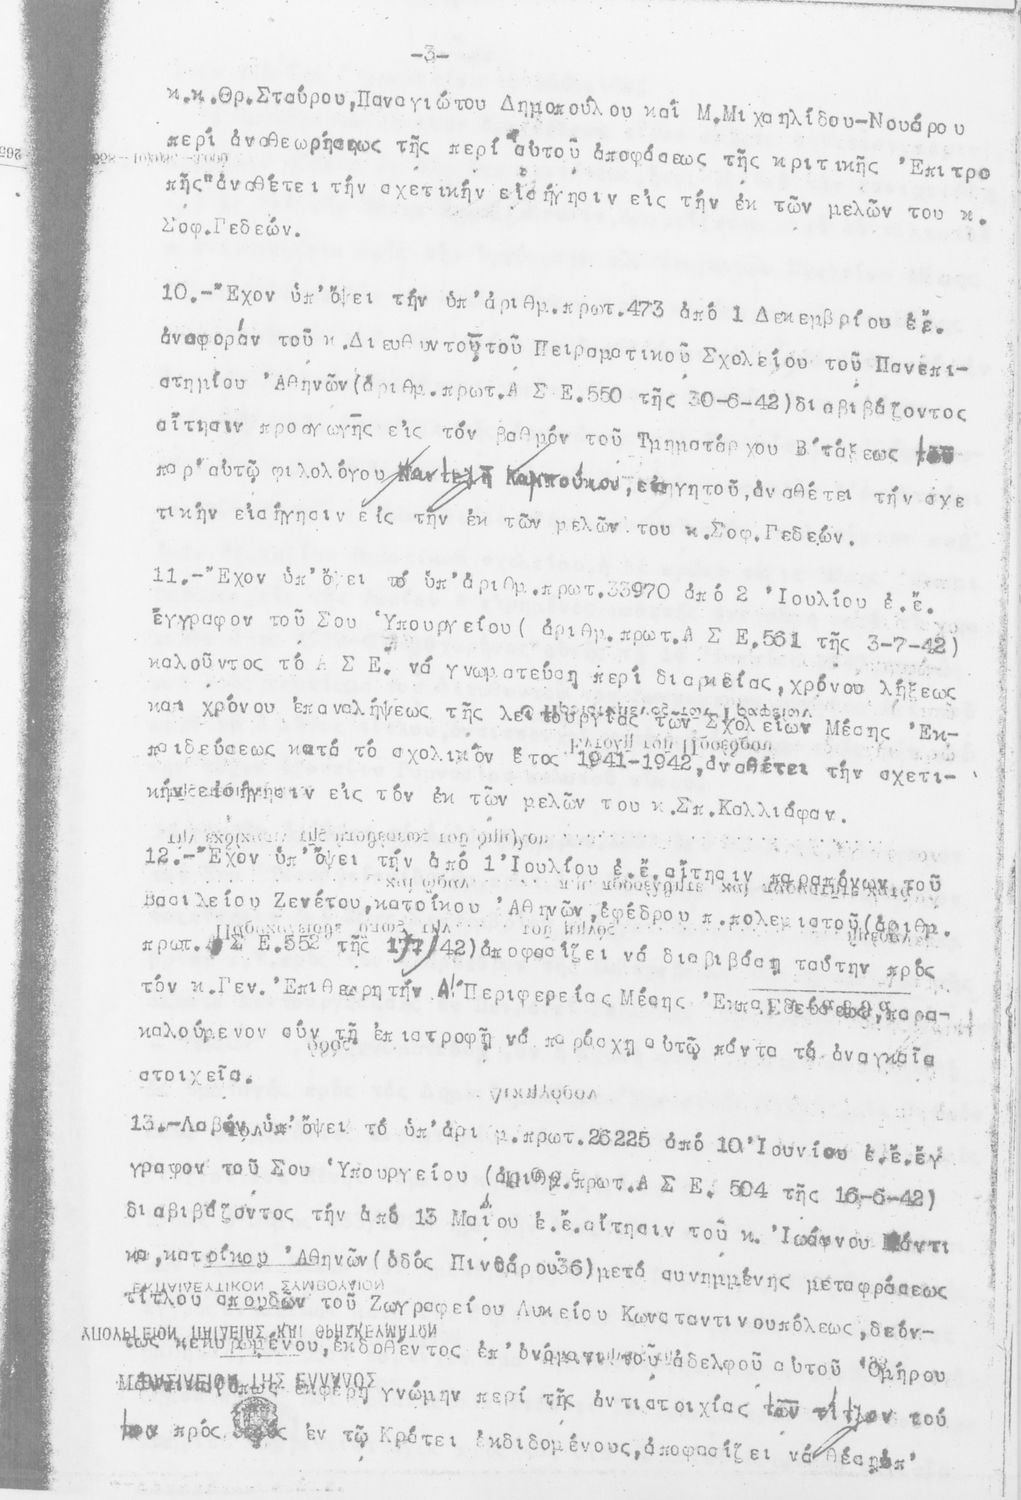 -3-
κ.κ.Θρ.Σταύρου,Παναγιώτου Δημοπούλου καί Μ.Μιχαηλίδου-Νουάρου
περί ἀναθεωρήσεως τῆς περί αὐτοῦ ἀποφάσεως τῆς κριτικῆς Ἐπιτρο
πῆς"ἀναθέτει τήν σχετικήν εἰσήγησιν εἰς τήν ἐκ τῶν μελῶν του κ.
Σοφ.Γεδεών.
10.-Ἔχον ὑπ'ὄψει τήν ὑπ'ἀριθμ.πρωτ.473 ἀπό 1 Δεκεμβρίου ἐ.ἔ.
ἀναφοράν τοῦ κ.Διευθυντοῦ τοῦ Πειραματικοῦ Σχολείου τοῦ Πανεπι-
στημίου Ἀθηνῶν(ἀριθμ.πρωτ.Α Σ Ε.550 τῆς 30-6-42)διαβιβάζοντος
αἴτησιν προαγωγῆς εἰς τόν βαθμόν τοῦ Τμηματάρχου Β'τάξεως τοῦ
παρ'αὐτῷ φιλολόγου Παντελῆ Καμπούκου,εἰσηγητοῦ,ἀναθέτει τήν σχε
τικήν εἰσήγησιν εἰς τήν ἐκ τῶν μελῶν του κ.Σοφ.Γεδεών.
11.-Ἔχον ὑπ'ὄψει τό ὑπ'ἀριθμ.πρωτ.33970 ἀπό 2 Ἰουλίου ἐ.ἔ.
ἔγγραφον τοῦ Σου Ὑπουργείου( ἀριθμ.πρωτ.Α Σ Ε.561 τῆς 3-7-42)
καλοῦντος τό Α Σ Ε. νά γνωματεύσῃ περί διαρκείας,χρόνου λήξεως
και χρόνου ἐπαναλήψεως τῆς λειτουργίας τῶν Σχολείων Μέσης Ἐκ-
παιδεύσεως κατά τό σχολικόν ἔτος 1941-1942,ἀναθέτει τήν σχετι-
κήν εἰσήγησιν εἰς τόν ἐκ τῶν μελῶν του κ.Σπ.Καλλιάφαν.
12.-Ἔχον ὑπ'ὄψει τήν ἀπό 1 Ἰουλίου ἐ.ἔ.αἴτησιν παραπόνων τοῦ
Βασιλείου Ζενέτου,κατοίκου Ἀθηνῶν,ἐφέδρου π.πολεμιστοῦ(ἀριθμ.
πρωτ.Α Σ Ε.552 τῆς 1/7/42)ἀποφασίζει νά διαβιβάσῃ ταύτην πρός
τόν κ.Γεν.Ἐπιθεωρητήν Α'Περιφερείας Μέσης Ἐκπαιδεύσεως,παρα-
καλούμενον σύν τῇ ἐπιστροφῇ νά παράσχῃ αὐτῷ πάντα τά ἀναγκαῖα
στοιχεῖα.
13.-Λαβόν ὑπ'ὄψει τό ὑπ'ἀρι μ.πρωτ.26225 ἀπό 10 Ἰουνίου ἐ.ἔ.ἔγ
γραφον τοῦ Σου Ὑπουργείου (ἀριθμ.πρωτ.Α Σ Ε. 504 τῆς 16-6-42)
διαβιβάζοντος τήν ἀπό 13 Μαΐου ἐ.ἔ.αἴτησιν τοῦ κ. Ἰωάννου Μάντι
κα,κατοίκου Ἀθηνῶν(ὁδός Πινδάρου 36)μετά συνημμένης μεταφράσεως
τίτλου σπουδῶν τοῦ Ζωγραφείου Λυκείου Κωνσταντινουπόλεως,δεόν-
τως κεκυρωμένου,ἐκδοθέντος ἐπ'ὀνόματι τοῦ ἀδελφοῦ αὐτοῦ Ὁμήρου
Μάντικα,ὅπως ἐκφέρῃ γνώμην περί τῆς ἀντιστοιχίας τῶν τίτλων τού
των πρός τούς ἐν τῷ Κράτει ἐκδιδομένους,ἀποφασίζει νά θέσῃ ὑπ'